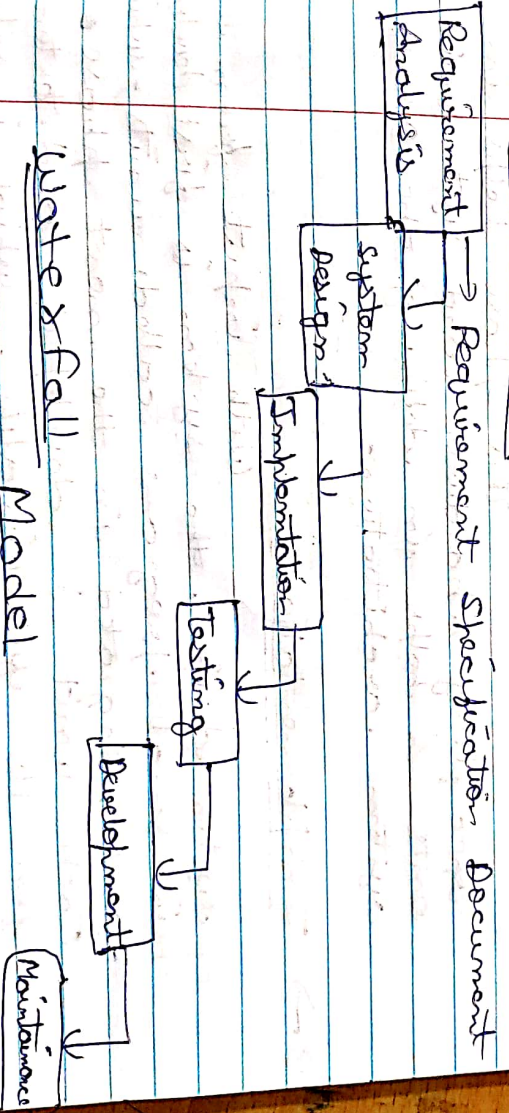 Requirement
Analysis
→ Requirement Specification Document
System
Design
Implomtation
Testing
Development
Maintainance
Waterfall Model